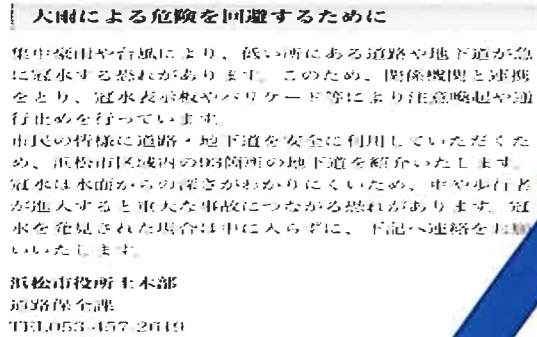 大雨による危険を回避するために
集中豪雨や台風により、低い所にある道路や地下道が急
に冠水する恐れがあります。このため、関係機関と連携
をとり、冠水表示板やバリケード等により注意喚起や通
行止めを行っています。
市民の皆様に道路・地下道を安全に利用していただくた
め、浜松市区域内の93箇所の地下道を紹介いたします。
冠水は水面からの深さがわかりにくいため、車や歩行者
が進入すると重大な事故につながる恐れがあります。冠
水を発見された場合は中に入らずに、下記へ連絡をお願
いいたします。
浜松市役所土木部
道路保全課
TEL053-457-2619